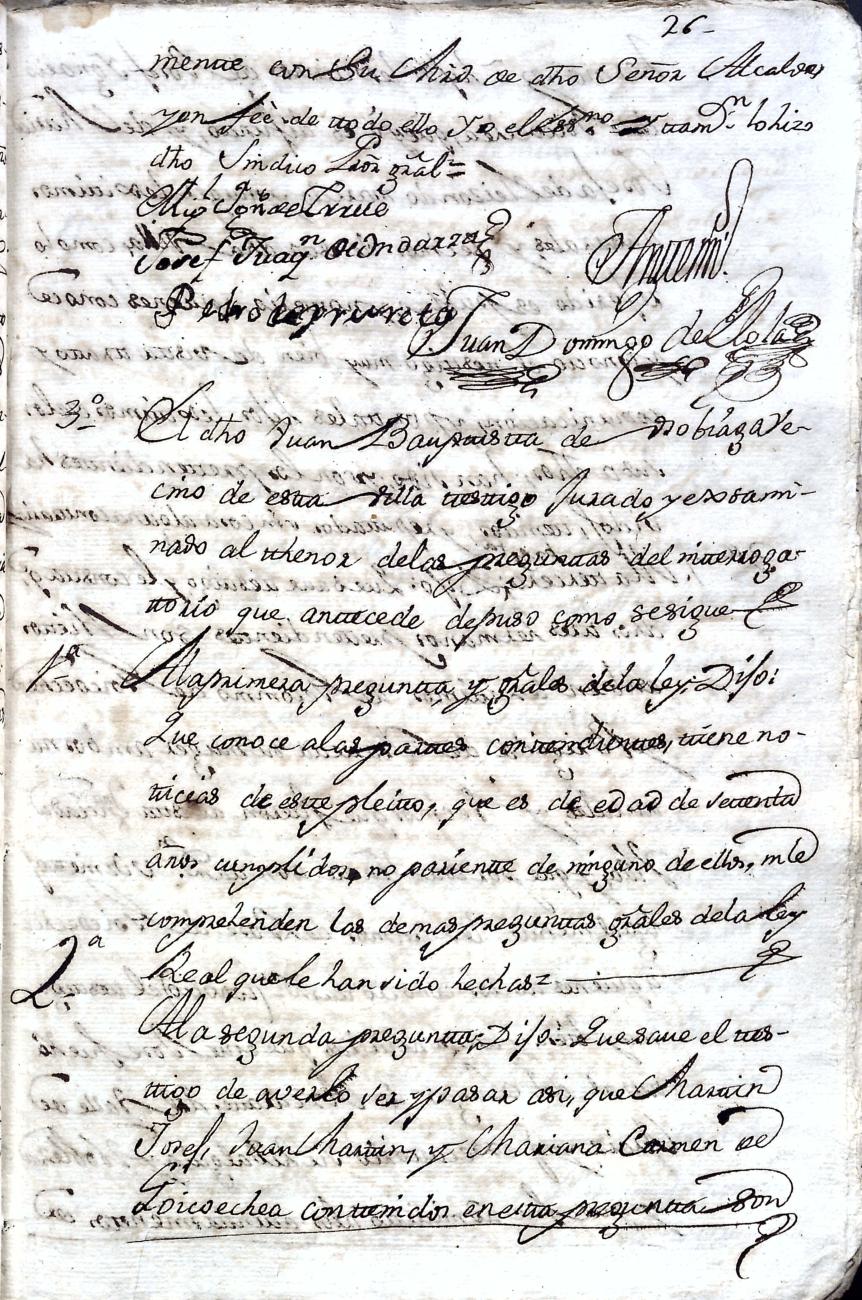 26-
mente con Su Mrd. de dho Señor Alcalde,
y en feè de ttodo ello Yo el Ess.no = y ttam.n lo hizo
dho Sindico Pror gral=
Mig.l Jph de Yrive
Josef Juaq.n de Ondarza
Anttemi
Pedro
Juan Domingo de Elola
3.o El dho Juan Bauptistta de Ve-
cino de estta villa ttesttigo Jurado y exsami-
nado al tthenor delas preguntas del intterroga-
ttorio que anttecede depuso como se sigue
1.a Ala primera preguntta y grãles dela ley: Dijo:
Que conoce alas parttes conttendienttes, ttiene no-
tticias de estte pleitto, que es de edad de settentta
años cumplidos, no parientte de ninguno de ellos, ni le
comprehenden las demas pregunttas grãles dela ley
Real que le han sido hechas=
2.a Ala segunda preguntta; Dijo: Que save el ttes-
ttigo de averlo ver y pasar asi, que Marttin
Josef, Juan Marttin, y Mariana Carmen de
Loicoechea conttenidos en estta preguntta son